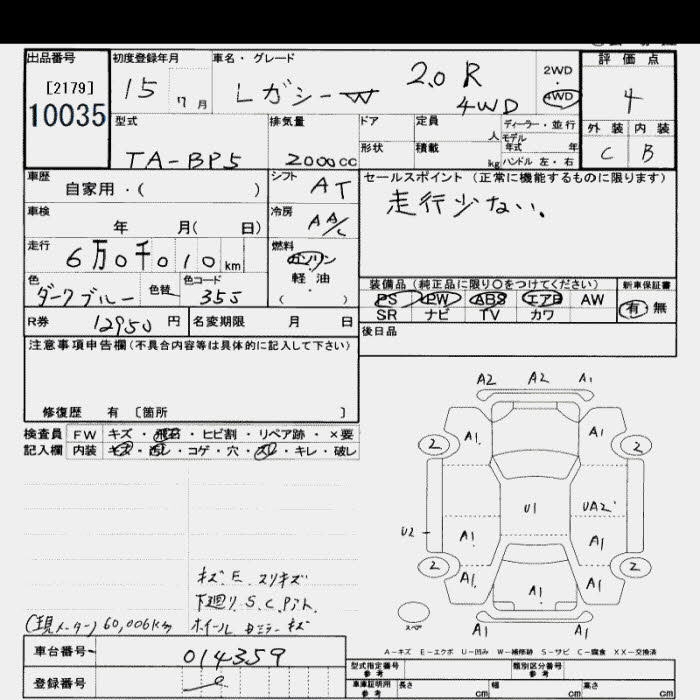 出品番号 初度登録年月 車名・グレード 評価点
[2179] 10035
15 7月 レガシーW 2.0 R 4WD
2WD ・ 4WD
4
外装 内装
C B
型式 排気量 ドア 定員 人 ディーラー・並行
モデル年式 年
形状 積載 kg ハンドル 左・右
TA-BP5 2000cc
車歴 自家用・( )
シフト AT
セールスポイント (正常に機能するものに限ります)
走行少ない.
車検 年 月( 日)
冷房 AA/C
走行 6万0千010km
燃料 ガソリン
軽油
( )
色 ダークブルー 色替 色コード 355
装備品 (純正品に限り○をつけてください) 新車保証書
PS PW ABS エアB AW 有・無
SR ナビ TV カワ
R券 12950円 名変期限 月 日
後日品
注意事項申告欄(不具合内容等は具体的に記入して下さい)
修復歴 有 〔箇所 〕
検査員 FW キズ・飛石・ヒビ割・リペア跡・×要
記入欄 内装 キズ・汚し・コゲ・穴・スレ・キレ・破し
A2 A2 A1
A1 A1
2 2
U1 UA2
U2 A1 A1
2 2
A1 A1 A1
スペア A1 A1
キズ E. スリキズ
下廻り S.C.P1ト.
(現メーター) 60,006km ホイール キズ
A-キズ E-エクボ U-凹み W-補修跡 S-サビ C-腐食 XX-交換済
車台番号 014359
登録番号
型式指定番号 参考 類別区分番号 参考
車庫証明用 参考 長さ cm 幅 cm 高さ cm